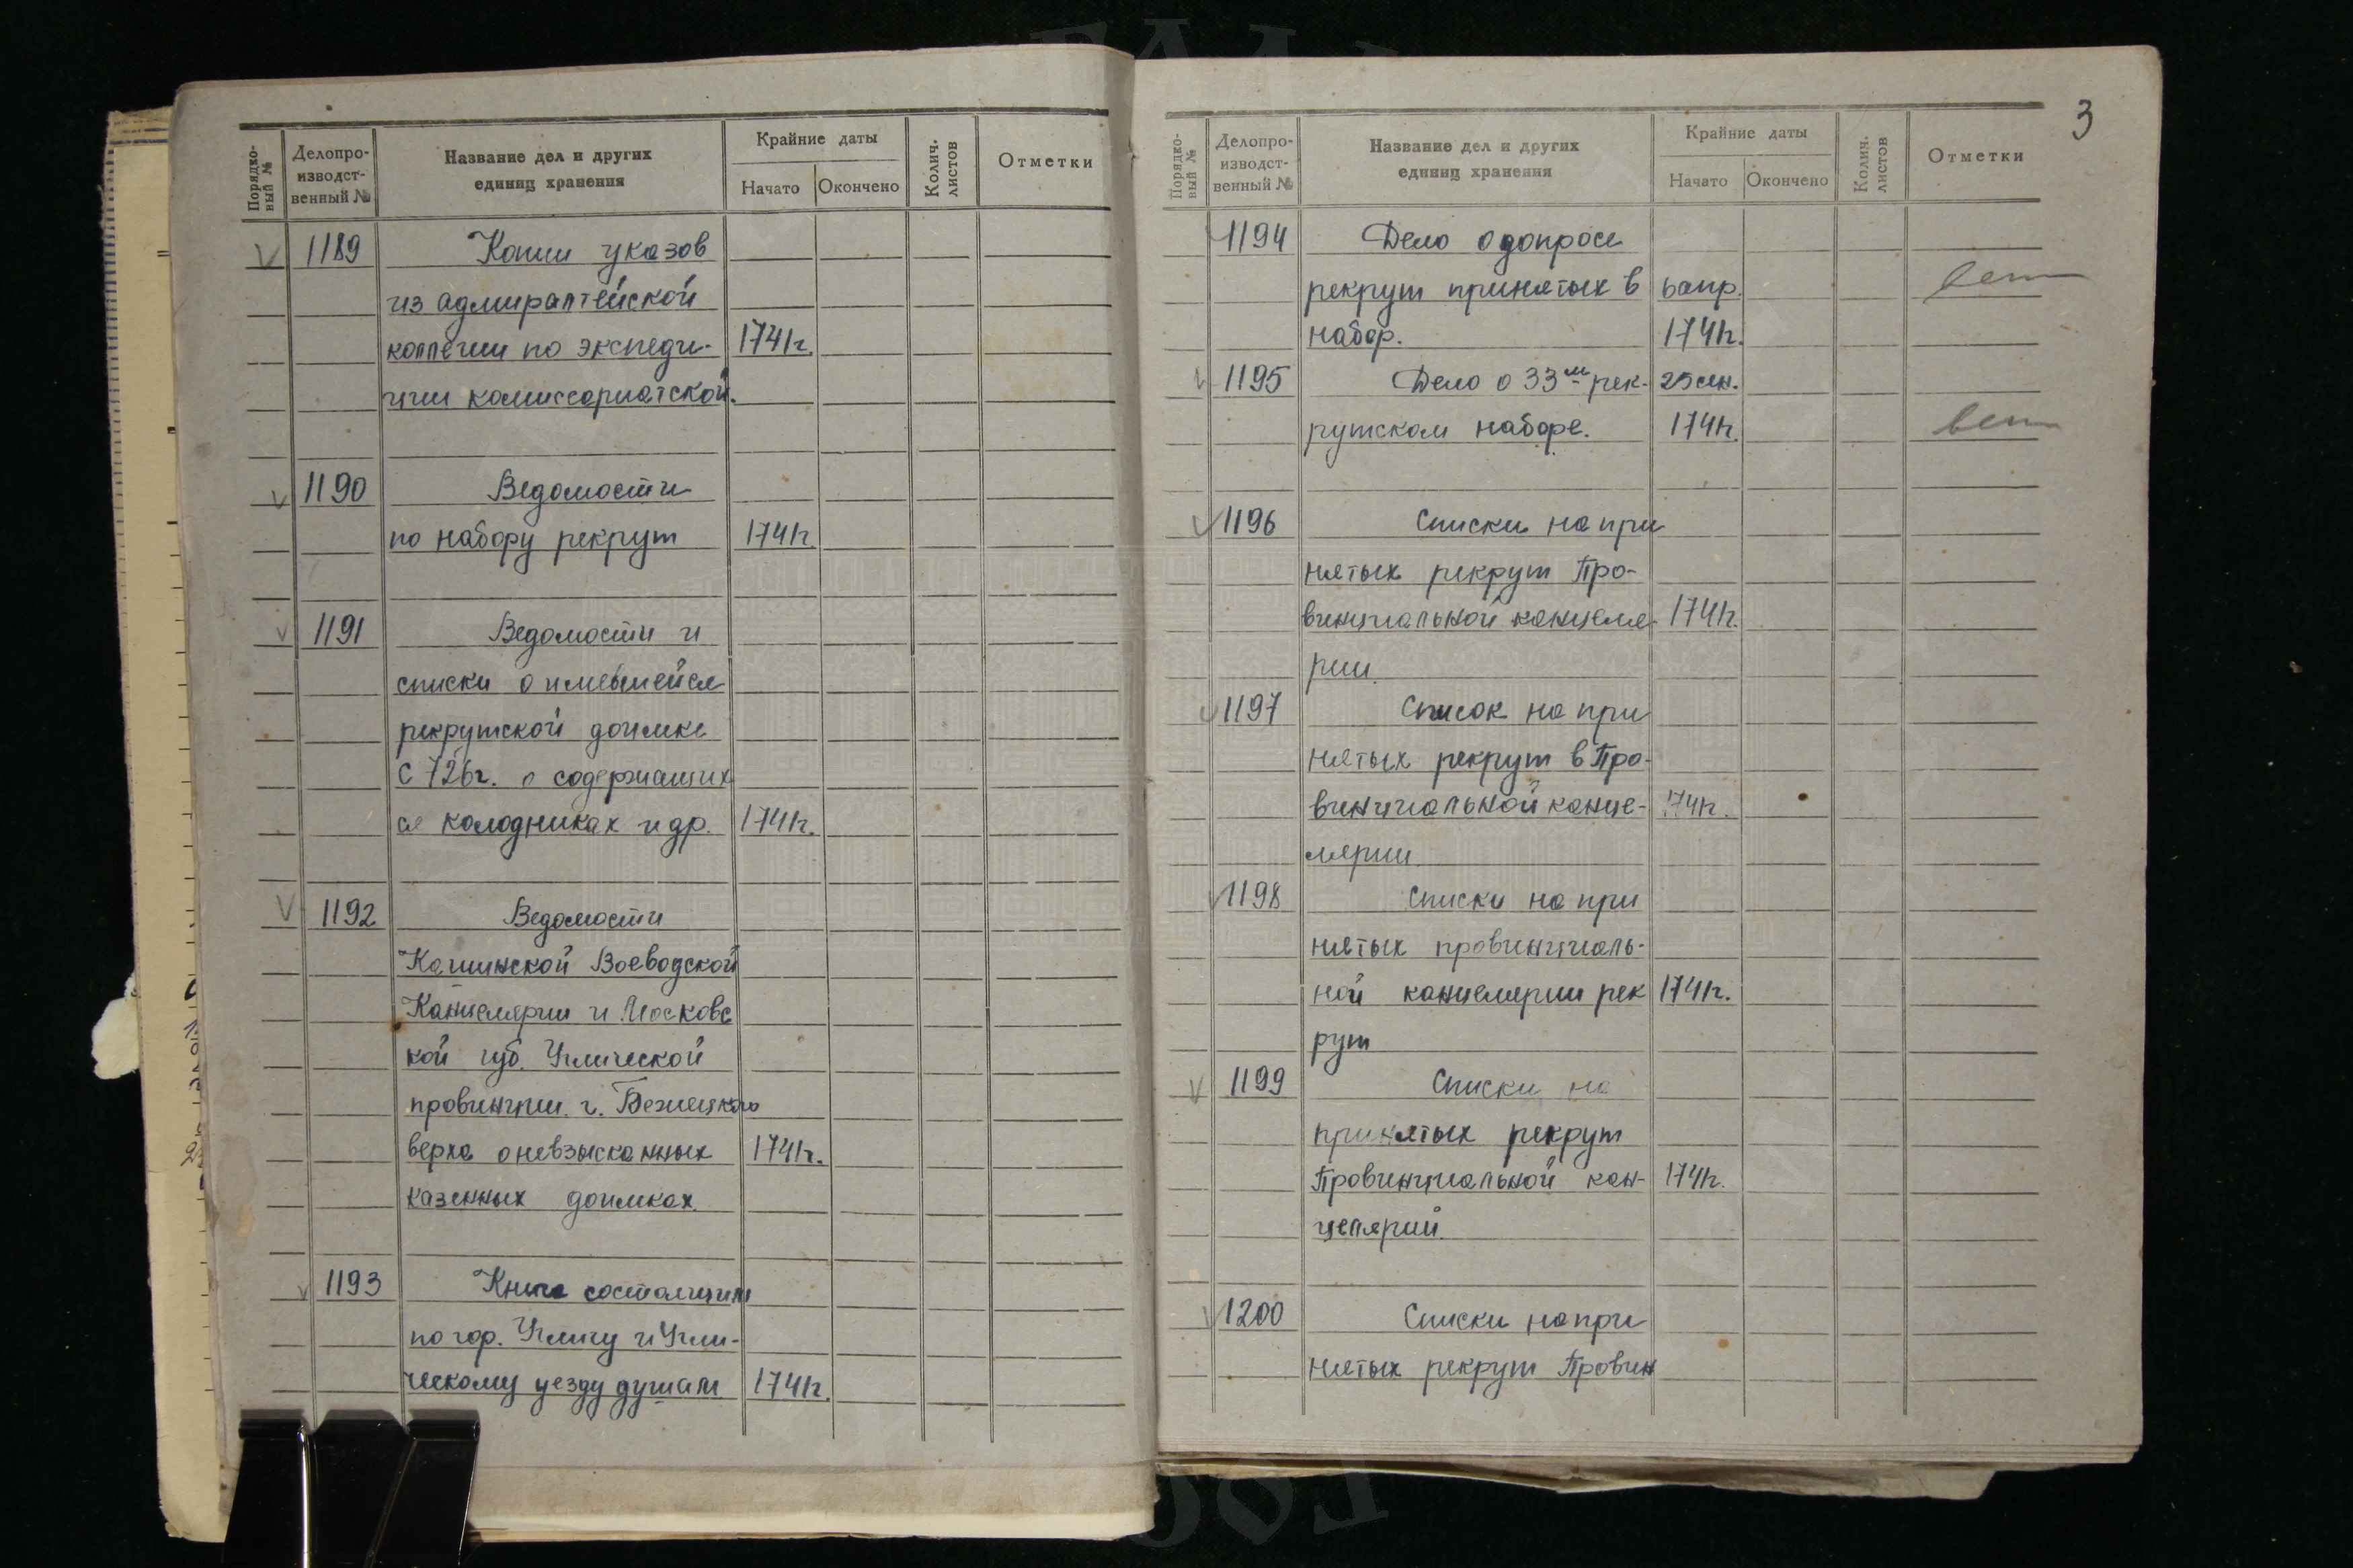 Порядко-
вый №
Делопро-
изводст-
венный №
Название дел и других
единиц хранения
Крайние даты
Начато
Окончено
Колич.
листов
Отметки
V 1189 Копии указов
из адмиралтейской
коллегии по экспеди- 1741г.
ции комиссариатской.
V 1190 Ведомости
по набору рекрут 1741г.
V 1191 Ведомости и
списки о имевшейся
рекрутской доимке
с 726г. о содержащих
ся колодниках и др. 1741г.
V 1192 Ведомости
Кашинской Воеводской
Канцелярии и Московс
кой губ. Угличской
провинции. г. Бежецкого
верха о невзысканных 1741г.
казенных доимках.
V 1193 Книга состоящим
по гор. Угличу и Угли-
ческому уезду душам 1741г.
3
Порядко-
вый №
Делопро-
изводст-
венный №
Название дел и других
единиц хранения
Крайние даты
Начато
Окончено
Колич.
листов
Отметки
V 1194 Дело о допросе
рекрут принятых в 6 апр.
набор. 1741г.
V 1195 Дело о 33м рек- 25 сен.
рутском наборе. 1741г.
V 1196 Списки на при
нятых рекрут Про-
винциальной канцеля- 1741г.
рии.
V 1197 Список на при
нятых рекрут в Про-
винциальной канце- 1741г.
лярии
V 1198 Списки на при
нятых провинциаль-
ной канцелярии рек 1741г.
рут
V 1199 Списки на
принятых рекрут
Провинциальной кан- 1741г.
целярий.
V 1200 Списки на при
нятых рекрут Провин